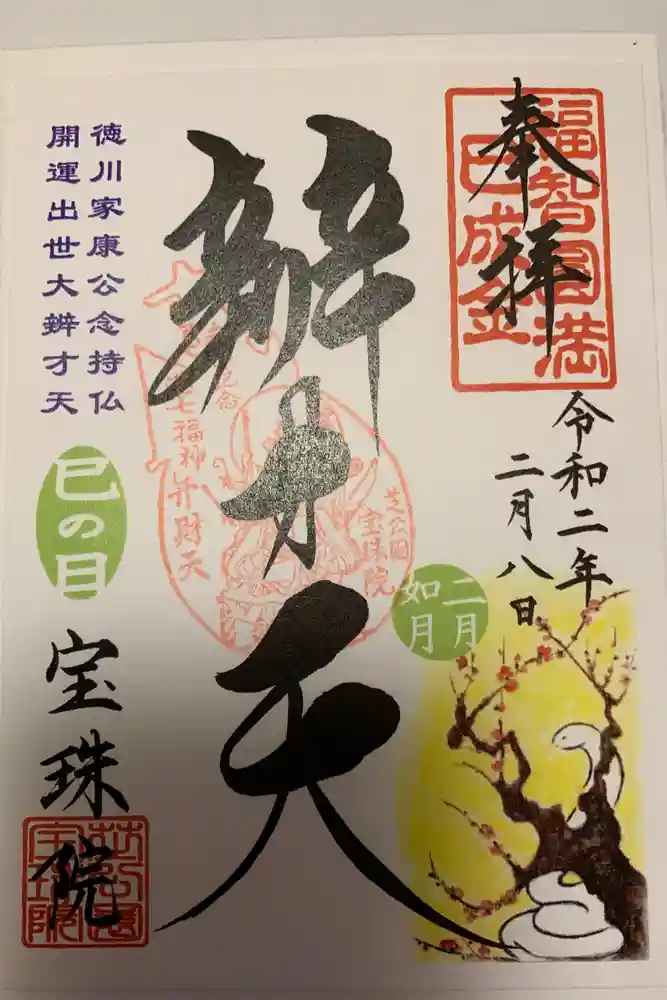 奉拝
福智圓満
巳成金
令和二年
二月八日
辨才天
七福神弁財天
芝公園
宝珠院
二月
如月
徳川家康公念持仏
開運出世大辨才天
巳の日
宝珠院